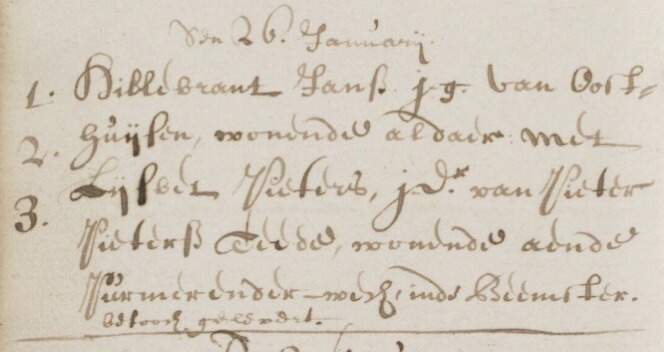 Den 26. Januarij.
1. Hillebrant Jansz. j.g. van Oost=
2. huijsen, wonende aldaer: met
3. Lijsbet Pieters, j.Dr. van Pieter
Pietersz Teede, wonende aende
Purmerender-wech, inde Beemster.
betooch gelevert.